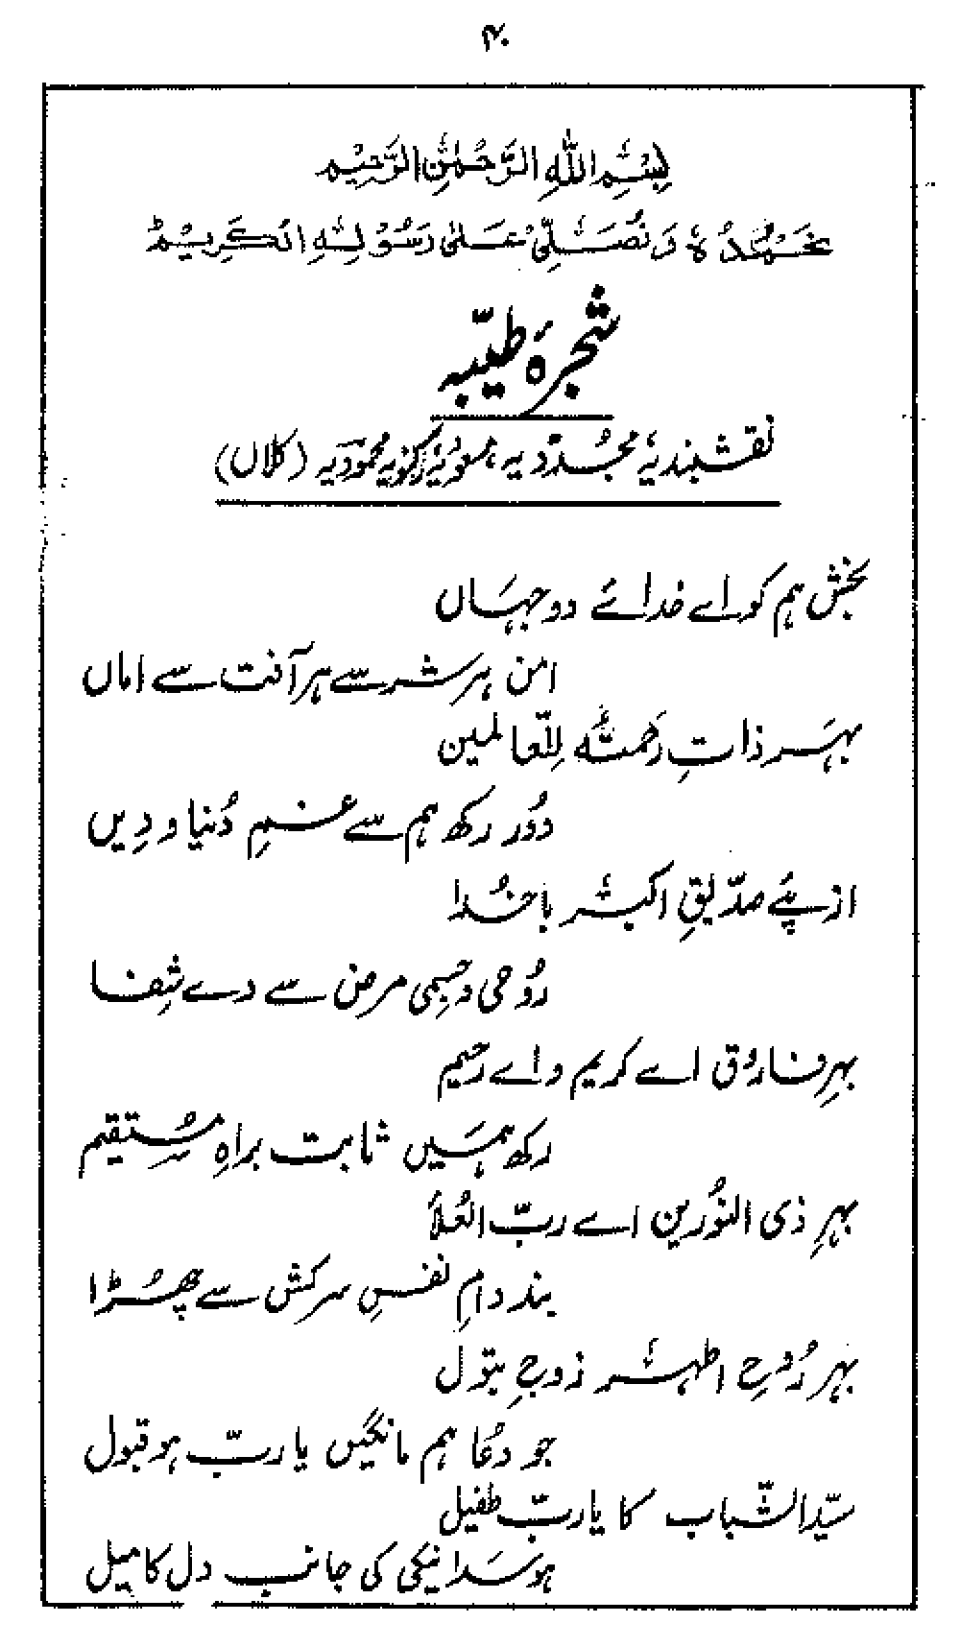 ۴۰
بِسْمِ اللهِ الرَّحْمٰنِ الرَّحِيْمِ
نَحْمَدُهٗ وَنُصَلِّیْ عَلٰی رَسُوْلِهِ الْكَرِيْمِ ط
شجرۂ طیّبہ
نقشبندیہ، مجدّدیہ، معمودیہ (کلاں)
بخش ہم کو اے خدائے دو جہَاں
امن ہر شر سے ہر آفت سے اماں
بہَر ذاتِ رَحمتہٌ لِلّعالمین
دُور رکھ ہم سے غمِ دُنیا و دِیں
از پئے صدّیقِ اکبر باخُدا
رُوحی و جسمی مرض سے دے شِفا
بہرِ فارُوق اے کریم و اے رحیم
رکھ ہمَیں ثابت براہِ مُستقیم
بہرِ ذی النُورین اے ربّ العُلاَ
بند دامِ نفسِ سرکش سے چھُڑا
بہر رُوحِ اطہر زوجِ بتول
جو دُعا ہم مانگیں یا ربّ ہو قبول
سیّد الشّباب کا یا ربّ طفیل
ہو سَدا نیکی کی جانب دل کا میل